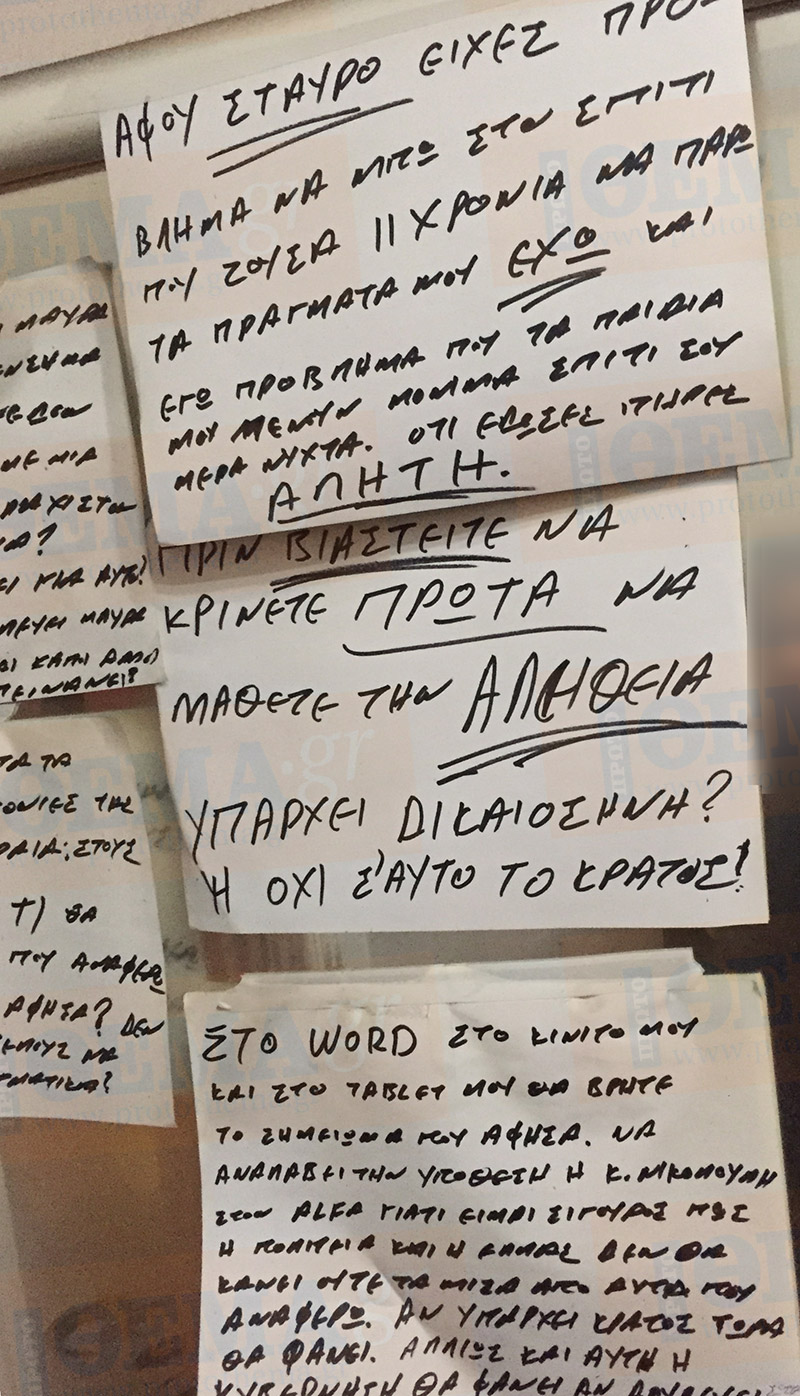 ΑΦΟΥ ΣΤΑΥΡΟ ΕΙΧΕΣ ΠΡΟ-
ΒΛΗΜΑ ΝΑ ΜΠΩ ΣΤΟ ΣΠΙΤΙ
ΠΟΥ ΖΟΥΣΑ 11 ΧΡΟΝΙΑ ΝΑ ΠΑΡΩ
ΤΑ ΠΡΑΓΜΑΤΑ ΜΟΥ ΕΧΩ ΚΑΙ
ΕΓΩ ΠΡΟΒΛΗΜΑ ΠΟΥ ΤΑ ΠΑΙΔΙΑ
ΜΟΥ ΜΕΝΟΥΝ ΜΟΝΙΜΑ ΣΠΙΤΙ ΣΟΥ
ΜΕΡΑ ΝΥΧΤΑ. ΟΤΙ ΕΔΩΣΕΣ ΠΗΡΕΣ
ΑΛΗΤΗ.
ΠΡΙΝ ΒΙΑΣΤΕΙΤΕ ΝΑ
ΚΡΙΝΕΤΕ ΠΡΩΤΑ ΝΑ
ΜΑΘΕΤΕ ΤΗΝ ΑΛΗΘΕΙΑ
ΥΠΑΡΧΕΙ ΔΙΚΑΙΟΣΗΝΗ?
Ή ΟΧΙ Σ'ΑΥΤΟ ΤΟ ΚΡΑΤΟΣ!
ΣΤΟ WORD ΣΤΟ ΚΙΝΙΤΟ ΜΟΥ
ΚΑΙ ΣΤΟ TABLET ΜΟΥ ΘΑ ΒΡΗΤΕ
ΤΟ ΣΗΜΕΙΩΜΑ ΠΟΥ ΑΦΗΣΑ. ΝΑ
ΑΝΑΛΑΒΕΙ ΤΗΝ ΥΠΟΘΕΣΗ Η Κ. ΝΙΚΟΛΟΥΛΗ
ΣΤΟΝ ALFA ΓΙΑΤΙ ΕΙΜΑΙ ΣΙΓΟΥΡΟΣ ΠΩΣ
Η ΠΟΛΙΤΕΙΑ ΚΑΙ Η ΕΛΛΑΣ ΔΕΝ ΘΑ
ΚΑΝΕΙ ΟΥΤΕ ΤΑ ΜΙΣΑ ΑΠΟ ΑΥΤΑ ΠΟΥ
ΑΝΑΦΕΡΩ. ΑΝ ΥΠΑΡΧΕΙ ΚΡΑΤΟΣ ΤΩΡΑ
ΘΑ ΦΑΝΕΙ. ΑΛΛΙΩΣ ΚΑΙ ΑΥΤΗ Η
ΚΥΒΕΡΝΗΣΗ ΘΑ ΦΑΝΕΙ ΑΝ
ΜΑΥΡΑ
ΜΕ ΜΙΑ
ΓΙΑ ΑΥΤΟ?
ΜΑΥΡΑ
ΚΑΤΙ ΑΠΟ
ΤΑ ΤΑ
ΤΗΣ
ΣΤΟΥΣ
ΤΙ ΘΑ
ΠΟΥ ΑΝΑΦΕΡΩ
ΑΦΗΣΑ? ΔΕΝ
ΝΑ